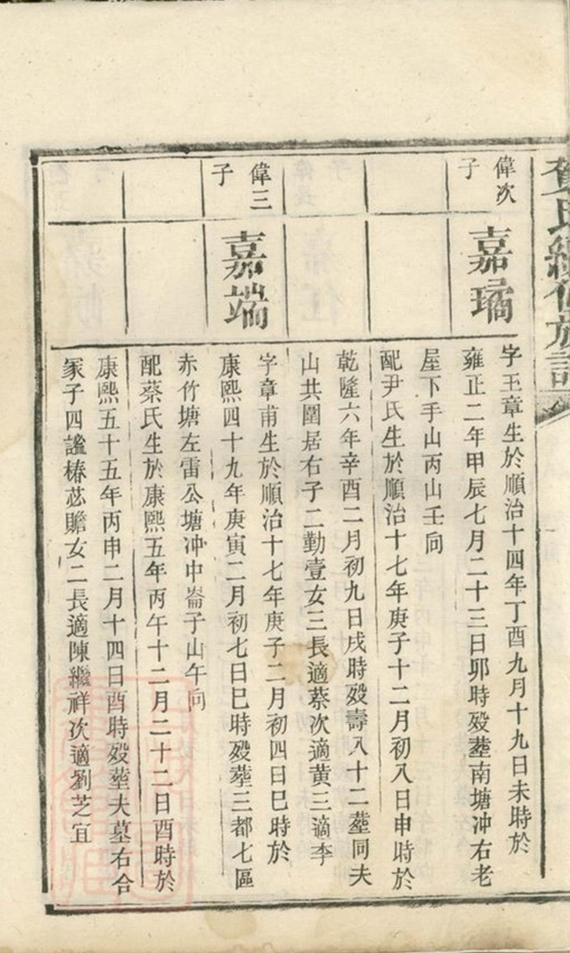 氏續修族譜
偉次
子
嘉璚
字玉章生於順治十四年丁酉九月十九日未時於
雍正二年甲辰七月二十三日卯時殁塟南塘冲右老
屋下手山丙山壬向
配尹氏生於順治十七年庚子十二月初八日申時於
乾隆六年辛酉二月初九日戌時殁壽八十二塟同夫
山共圍居右子二勤壹女三長適蔡次適黄三適李
偉三
子
嘉端
字章甫生於順治十七年庚子二月初四日巳時於
康熙四十九年庚寅二月初七日巳時殁塟三都七區
赤竹塘左雷公塘冲中崙子山午向
配蔡氏生於康熙五年丙午十二月二十二日酉時於
康熙五十五年丙申二月十四日酉時殁塟夫墓右合
冢子四謐椿苾贍女二長適陳繼祥次適劉芝宜